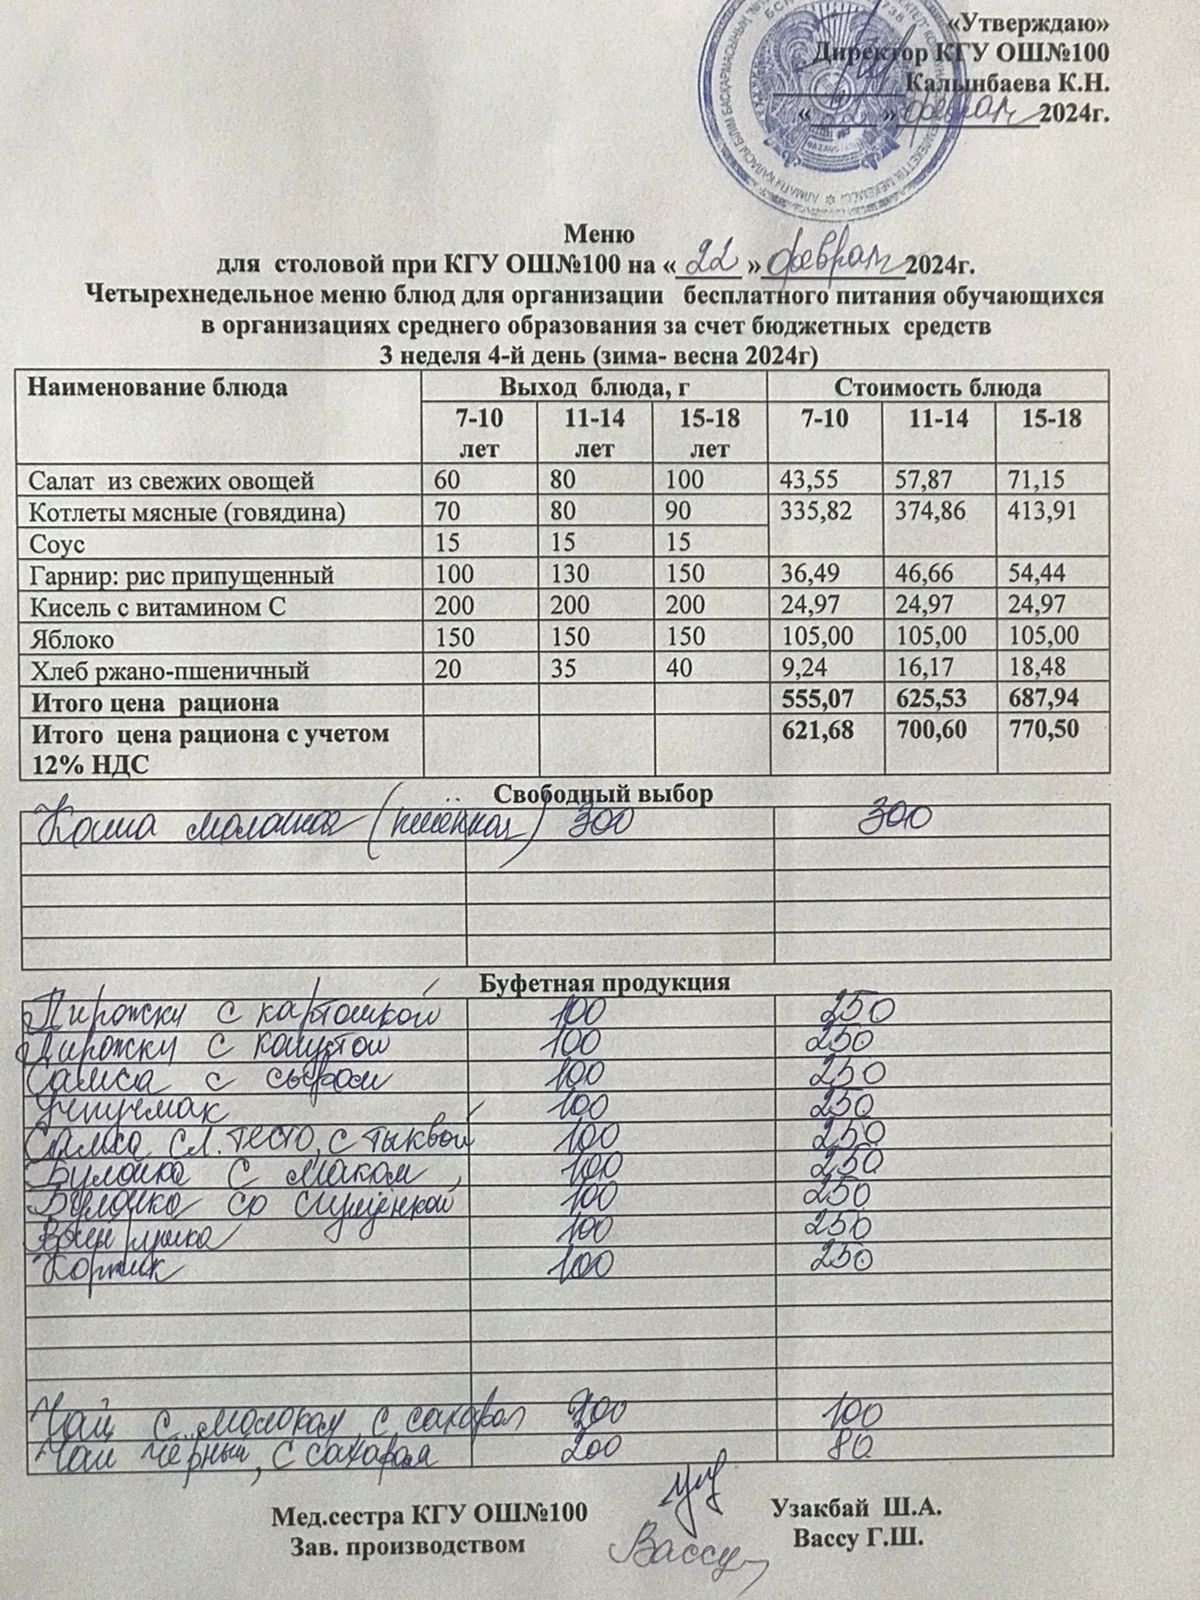 «Утверждаю»
Директор КГУ ОШ№100
Калынбаева К.Н.
« » февраля 2024г.
Меню
для столовой при КГУ ОШ№100 на « 22 » февраля 2024г.
Четырехнедельное меню блюд для организации бесплатного питания обучающихся
в организациях среднего образования за счет бюджетных средств
3 неделя 4-й день (зима- весна 2024г)
Наименование блюда Выход блюда, г Стоимость блюда
7-10 лет 11-14 лет 15-18 лет 7-10 11-14 15-18
Салат из свежих овощей 60 80 100 43,55 57,87 71,15
Котлеты мясные (говядина) 70 80 90 335,82 374,86 413,91
Соус 15 15 15
Гарнир: рис припущенный 100 130 150 36,49 46,66 54,44
Кисель с витамином С 200 200 200 24,97 24,97 24,97
Яблоко 150 150 150 105,00 105,00 105,00
Хлеб ржано-пшеничный 20 35 40 9,24 16,17 18,48
Итого цена рациона 555,07 625,53 687,94
Итого цена рациона с учетом 12% НДС 621,68 700,60 770,50
Свободный выбор
Каша молочная (пшённая) 300 300
Буфетная продукция
Пирожки с картошкой 100 250
Пирожки с капустой 100 250
Самса с сыром 100 250
Учпучмак 100 250
Самса сл. тесто, с тыквой 100 250
Булочка с маком 100 250
Булочка со сгущёнкой 100 250
Ватрушка 100 250
Коржик 100 250
Чай с молоком, с сахаром 200 100
Чай чёрный, с сахаром 200 80
Мед.сестра КГУ ОШ№100 Узакбай Ш.А.
Зав. производством Вассу Вассу Г.Ш.